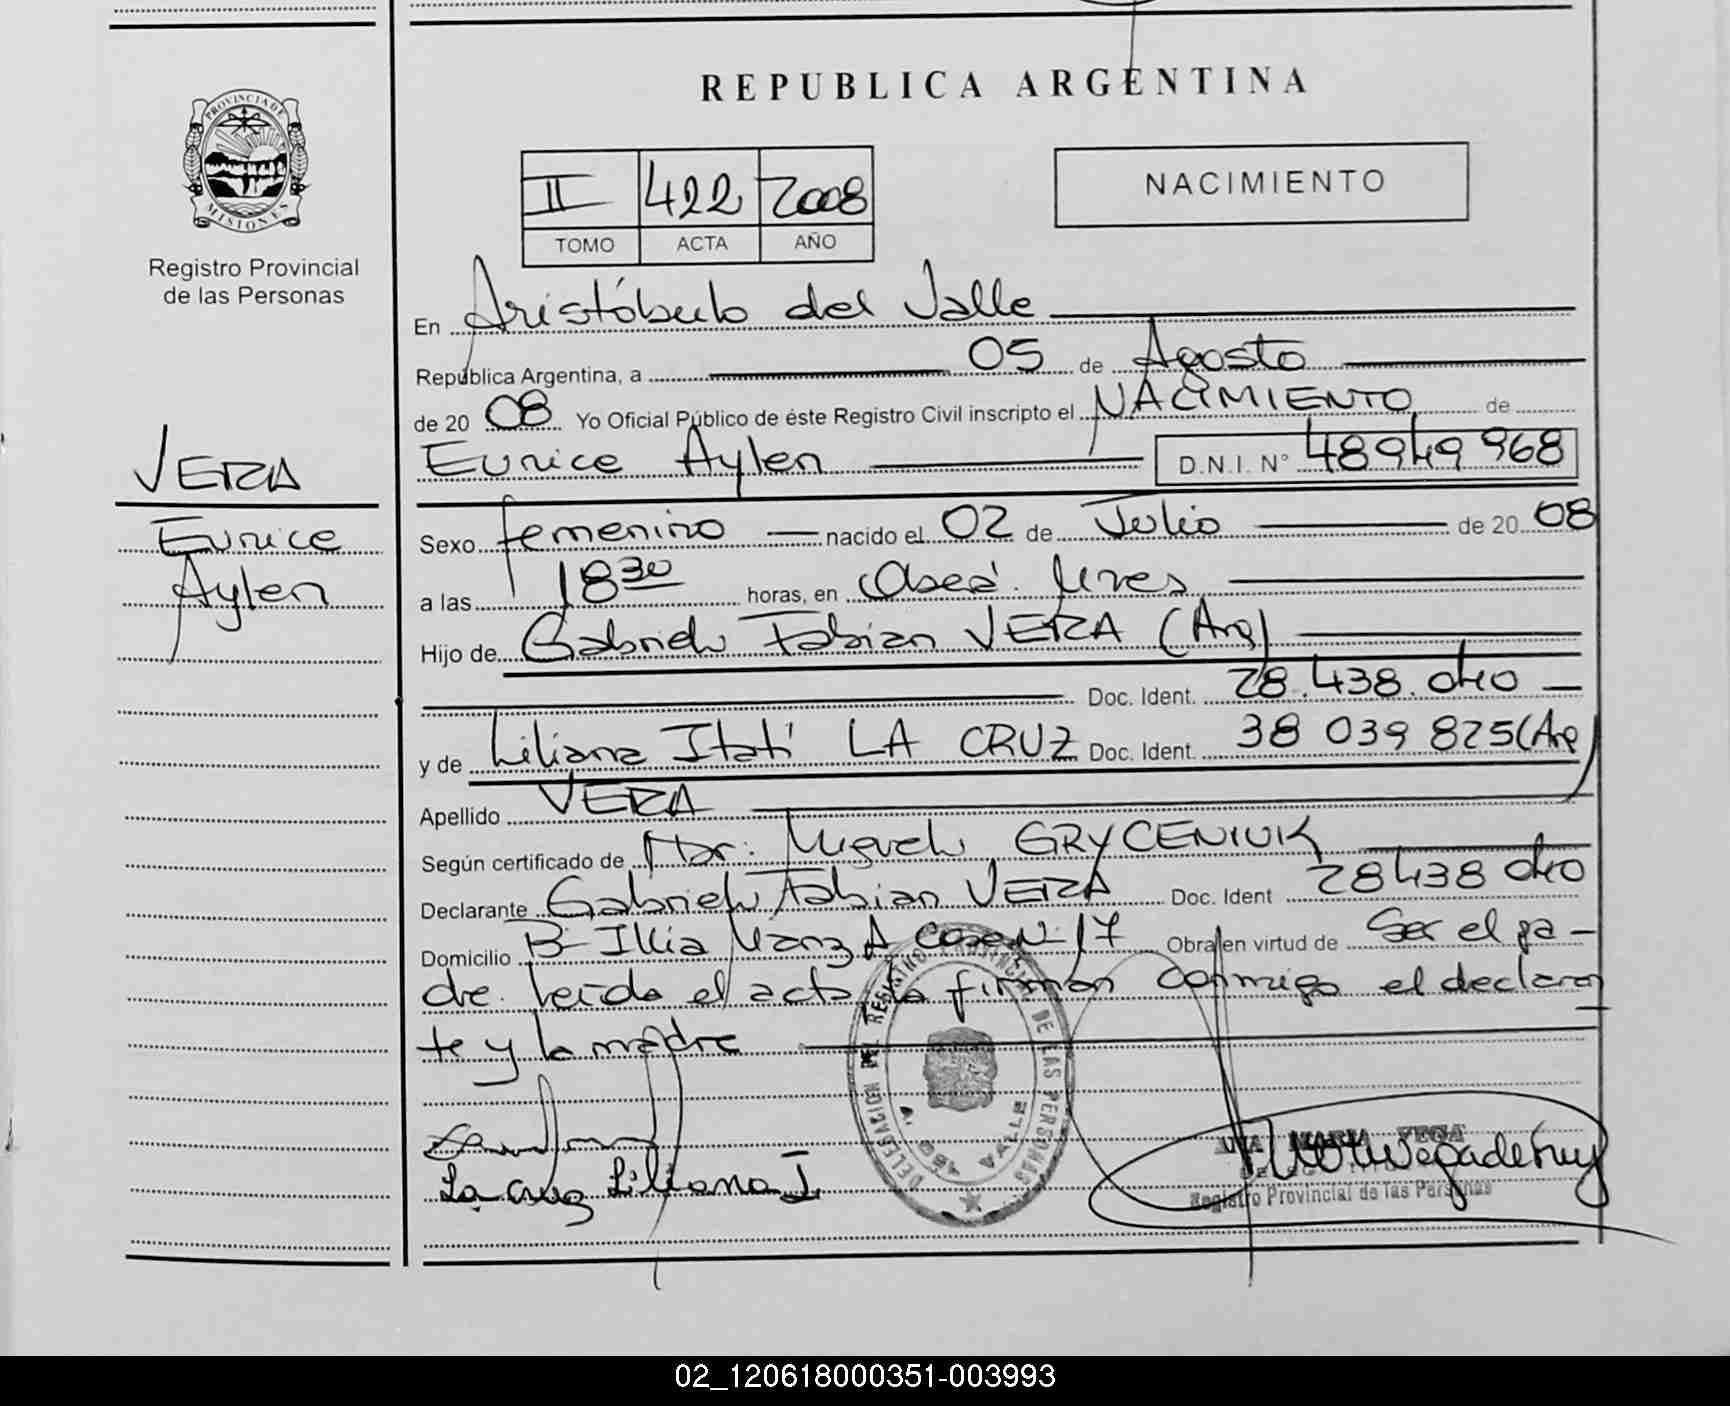 REPUBLICA ARGENTINA
PROVINCIA DE
MISIONES
Registro Provincial
de las Personas
II 422 2008
TOMO ACTA AÑO
NACIMIENTO
En Aristóbulo del Valle
República Argentina, a 05 de Agosto
de 20 08 Yo Oficial Público de éste Registro Civil inscripto el NACIMIENTO de
VERA
Eunice Aylen D.N.I. N° 48949968
Eunice
Aylen
Sexo femenino nacido el 02 de Julio de 20 08
a las 18 30 horas, en
Hijo de Gabriel Fabian VERA (Arg)
Doc. Ident. 28.438.040
y de Liliana Itatí LA CRUZ Doc. Ident. 38 039 825 (Arg
Apellido VERA
Según certificado de Dr. Miguel GRYCENIUK
Declarante Gabriel Fabian VERA Doc. Ident 28438 040
Domicilio B- Illia Manz A Casa N 17 Obra en virtud de Ser el pa-
dre. Leída el acta, la firman conmigo el declaran
te y la madre
DELEGACION DEL REGISTRO PROVINCIAL DE LAS PERSONAS
A. DEL VALLE
La Cruz Liliana I.
ANA MARIA VEGA
Registro Provincial de las Personas
02_120618000351-003993